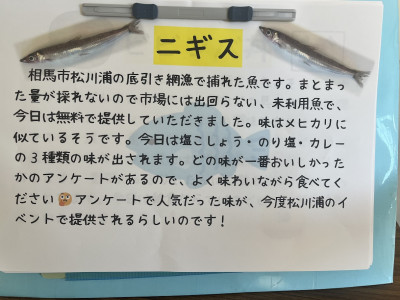 ニギス
相馬市松川浦の底引き網漁で捕れた魚です。まとまっ
た量が採れないので市場には出回らない、未利用魚で、
今日は無料で提供していただきました。味はメヒカリに
似ているそうです。今日は塩こしょう・のり塩・カレー
の3種類の味が出されます。どの味が一番おいしかった
かのアンケートがあるので、よく味わいながら食べてく
ださい😋アンケートで人気だった味が、今度松川浦のイ
ベントで提供されるらしいのです!